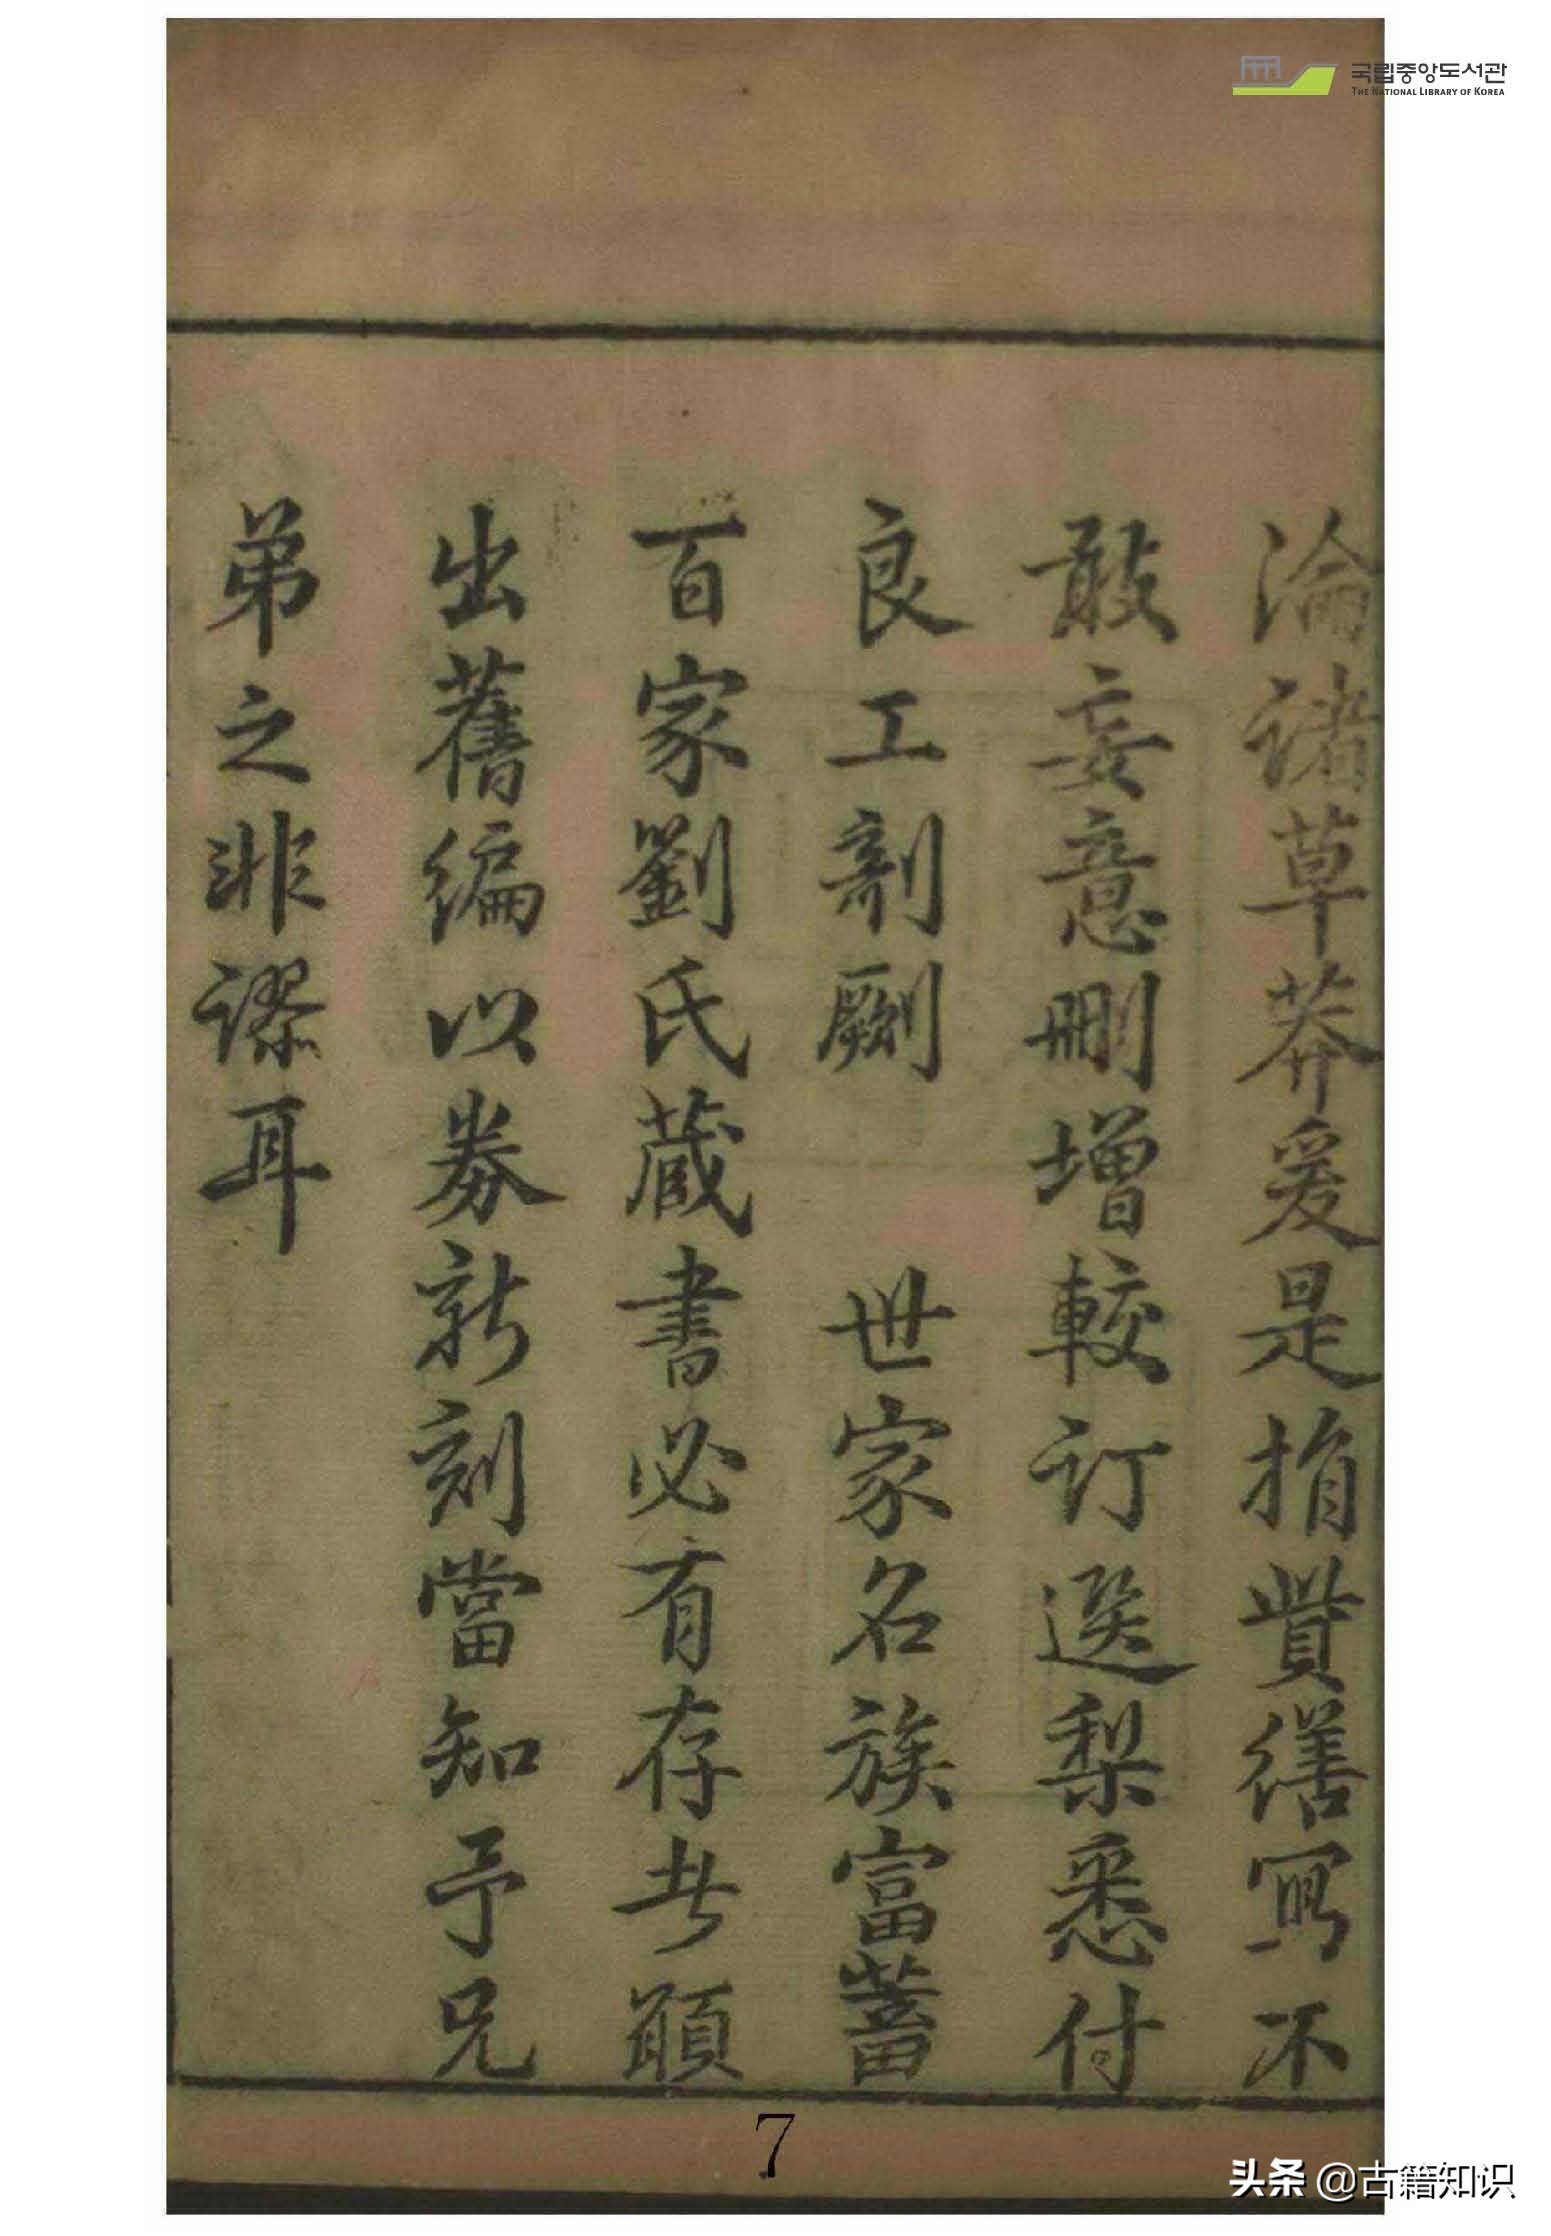 국립중앙도서관
THE NATIONAL LIBRARY OF KOREA
淪諸草莽爰是捐貲繕寫不
敢妄意刪增較訂選梨悉付
良工剞劂　世家名族富蓄
百家劉氏藏書必有存者願
出舊編以券新刻當知予兄
弟之非謬耳
7
头条 @古籍知识